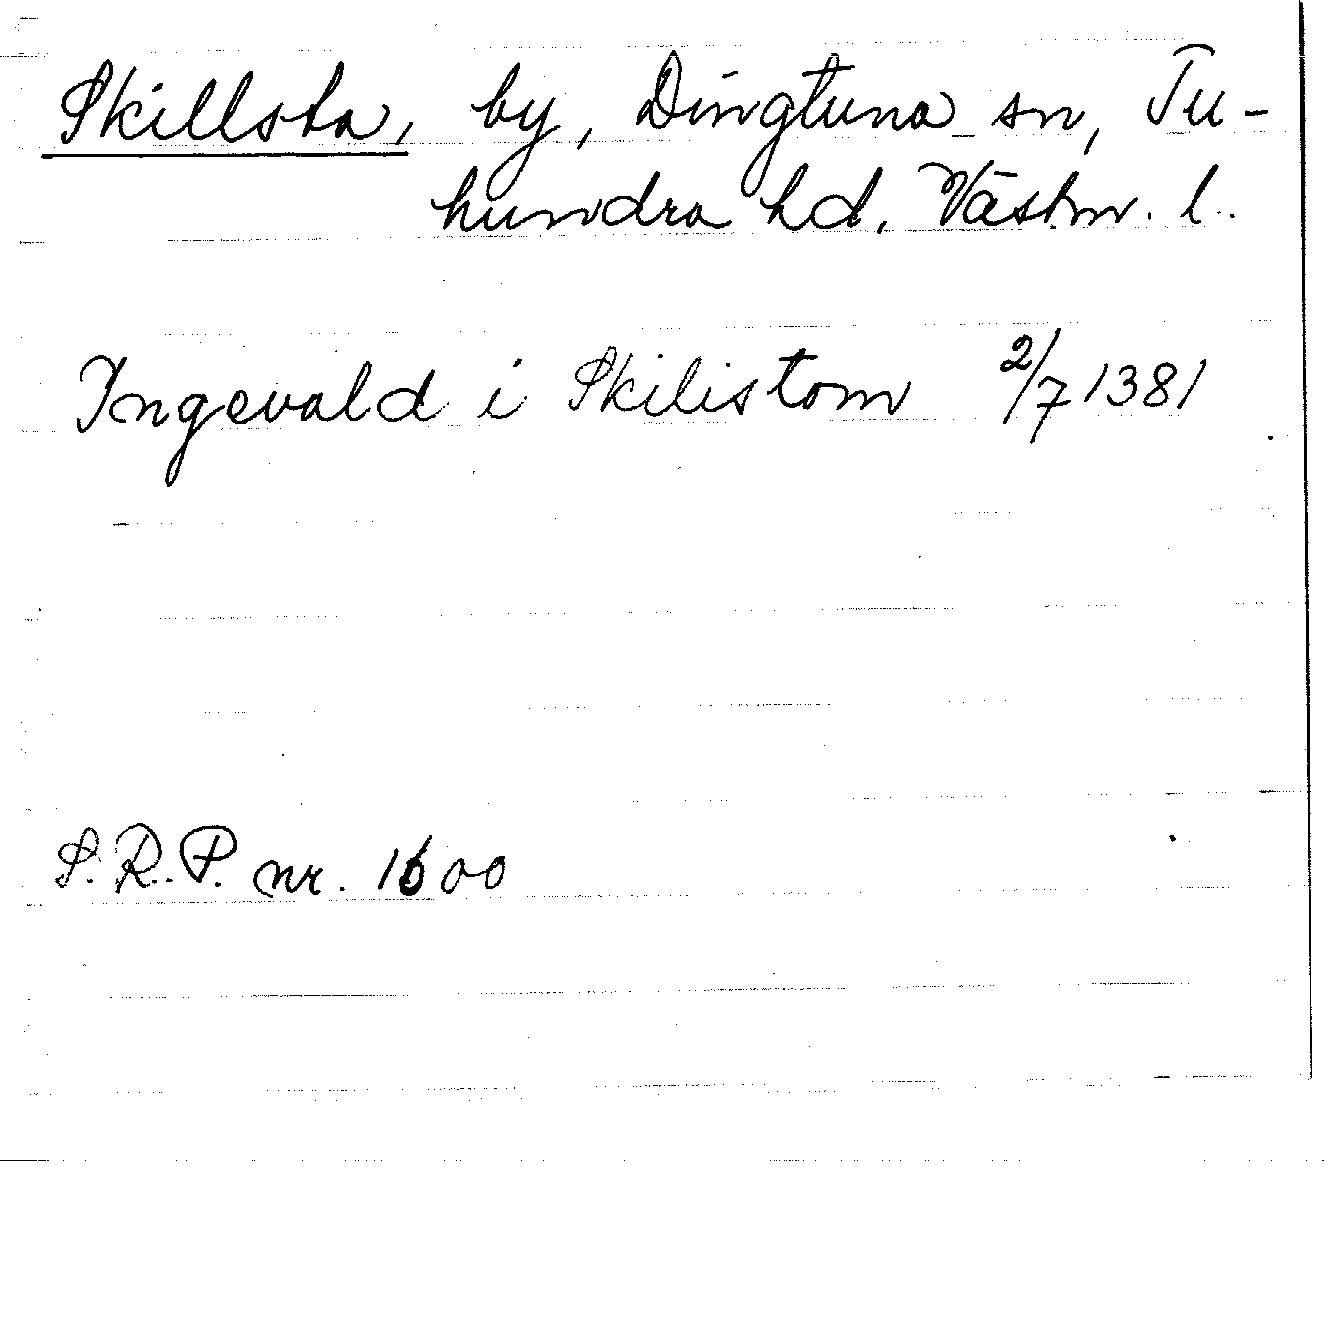 Skillsta, by, Dingtuna sn, Tu-
hundra hd, Västm. l.
Ingevald i Skilistom 2/7 1381
S.R.P. nr. 1600